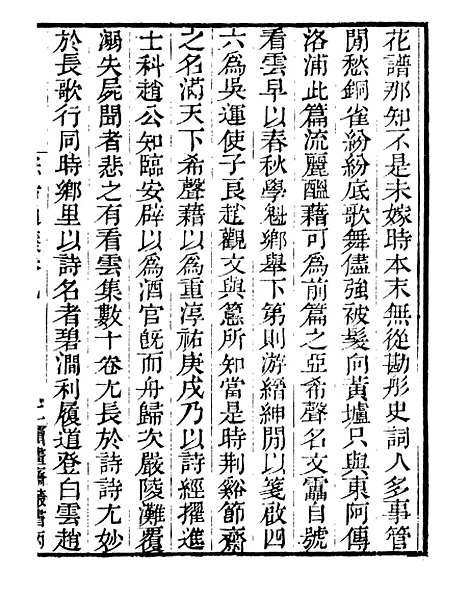 花譜那知不是未嫁時本末無從勘彤史詞人多事管
閒愁銅雀紛紛底歌舞儘強被髮向黃壚只與東阿傳
洛浦此篇流麗醞藉可為前篇之亞希聲名文靁自號
看雲早以春秋學魁鄉舉下第則游縉紳閒以箋啟四
六為吳運使子良趙觀文與𥲅所知當是時荆谿節齋
之名滿天下希聲藉以為重淳祐庚戌乃以詩經擢進
士科趙公知臨安辟以為酒官旣而舟歸次嚴陵灘覆
溺失屍聞者悲之有看雲集數十卷尤長於詩詩尤妙
於長歌行同時鄉里以詩名者碧澗利履道登白雲趙
讀畫齋叢書丙